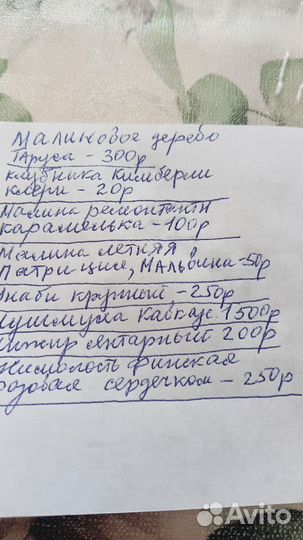 Малиновое дерево
Таруса - 300р
клубника Кимберли
клери - 20р
Малина ремонтантн
карамелька - 100р
Малина летняя
Патриция, Мальвина - 50р
Унаби крупный - 250р
Мушмула кавказ. 1500р
Инжир янтарный 200р
Жимолость финская
розовая сердечком - 250р
Avito